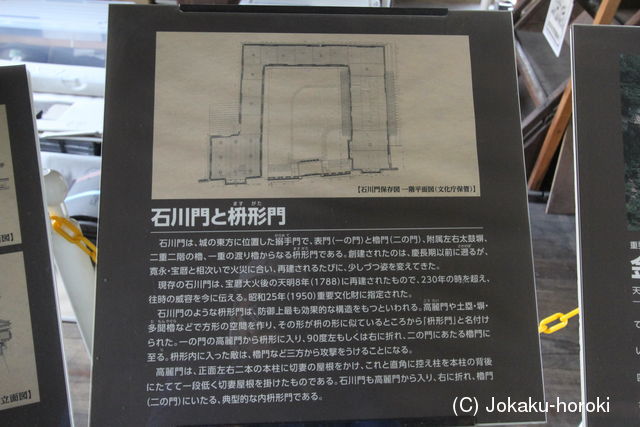 【石川門保存図 一階平面図(文化庁保管)】
ます がた
石川門と枡形門
石川門は、城の東方に位置した搦手門で、表門(一の門)と櫓門(二の門)、附属左右太鼓塀、
二重二階の櫓、一重の渡り櫓からなる枡形門である。創建されたのは、慶長期以前に遡るが、
寛永・宝暦と相次いで火災に合い、再建されるたびに、少しづつ姿を変えてきた。
現存の石川門は、宝暦大火後の天明8年(1788)に再建されたもので、230年の時を超え、
往時の威容を今に伝える。昭和25年(1950)重要文化財に指定された。
石川門のような枡形門は、防御上最も効果的な構造をもつといわれる。高麗門や土塁・塀・
多聞櫓などで方形の空間を作り、その形が枡の形に似ているところから「枡形門」と名付け
られた。一の門の高麗門から枡形に入り、90度左もしくは右に折れ、二の門にあたる櫓門に
至る。枡形内に入った敵は、櫓門など三方から攻撃をうけることになる。
高麗門は、正面左右二本の本柱に切妻の屋根をかけ、これと直角に控え柱を本柱の背後
にたてて一段低く切妻屋根を掛けたものである。石川門も高麗門から入り、右に折れ、櫓門
(二の門)にいたる、典型的な内枡形門である。
面図】
立面図】
(C) Jokaku-horoki